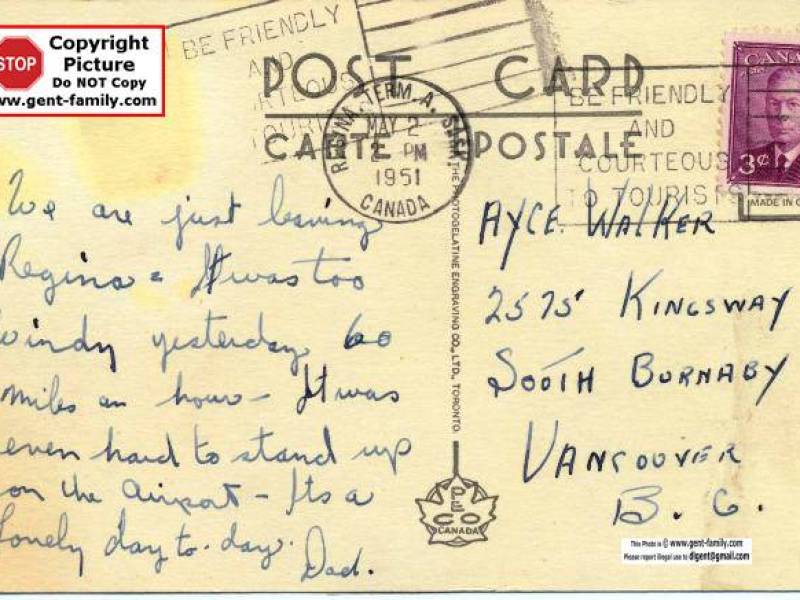 STOP
Copyright
Picture
Do NOT Copy
www.gent-family.com
BE FRIENDLY
AND
TOURI
POST CARD
CARTE POSTALE
REGINA TERM. A. SASK.
MAY 2
2 PM
1951
CANADA
BE FRIENDLY
AND
COURTEOUS
TO TOURISTS
CANA
3¢
MADE IN C
We are just leaving
Regina - It was too
windy yesterday 60
miles an hour - It was
even hard to stand up
on the Airport - Its a
lonely day to-day.
Dad.
THE PHOTOGELATINE ENGRAVING CO., LTD., TORONTO.
PECO
CANADA
AYCE WALKER
2575 KINGSWAY
SOUTH BURNABY
VANCOUVER
B. C.
This Photo is © www.gent-family.com
Please report illegal use to digent@gmail.com